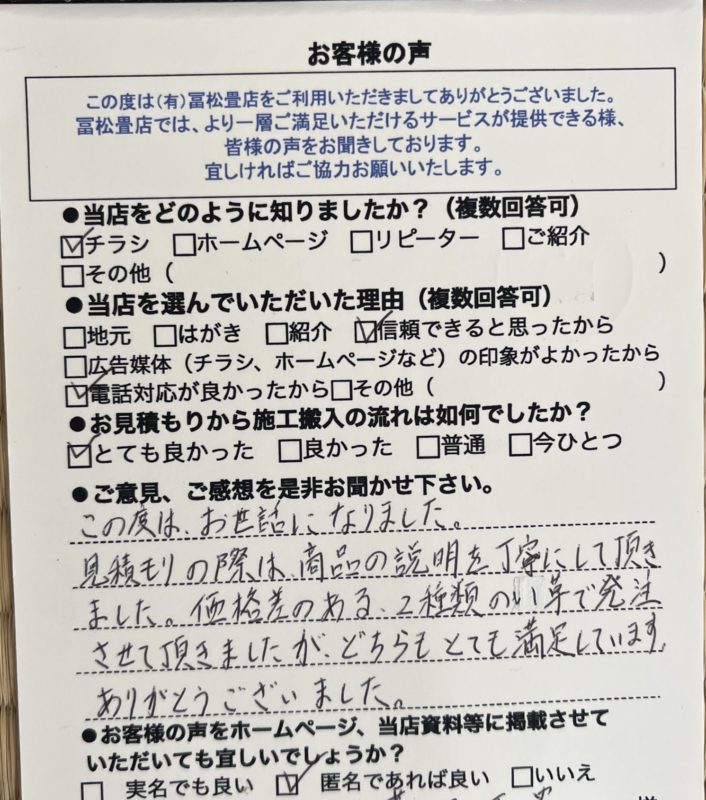 お客様の声
この度は(有)冨松畳店をご利用いただきましてありがとうございました。
冨松畳店では、より一層ご満足いただけるサービスが提供できる様、
皆様の声をお聞きしております。
宜しければご協力お願いいたします。
●当店をどのように知りましたか？（複数回答可）
☑チラシ □ホームページ □リピーター □ご紹介
□その他（ ）
●当店を選んでいただいた理由（複数回答可）
□地元 □はがき □紹介 ☑信頼できると思ったから
□広告媒体（チラシ、ホームページなど）の印象がよかったから
☑電話対応が良かったから□その他（ ）
●お見積もりから施工搬入の流れは如何でしたか？
☑とても良かった □良かった □普通 □今ひとつ
●ご意見、ご感想を是非お聞かせ下さい。
この度は、お世話になりました。
見積もりの際は、商品の説明を丁寧にして頂き
ました。価格差のある、2種類のい草で発注
させて頂きましたが、どちらもとても満足しています。
ありがとうございました。
●お客様の声をホームページ、当店資料等に掲載させて
いただいても宜しいでしょうか？
□ 実名でも良い ☑ 匿名であれば良い □いいえ
様